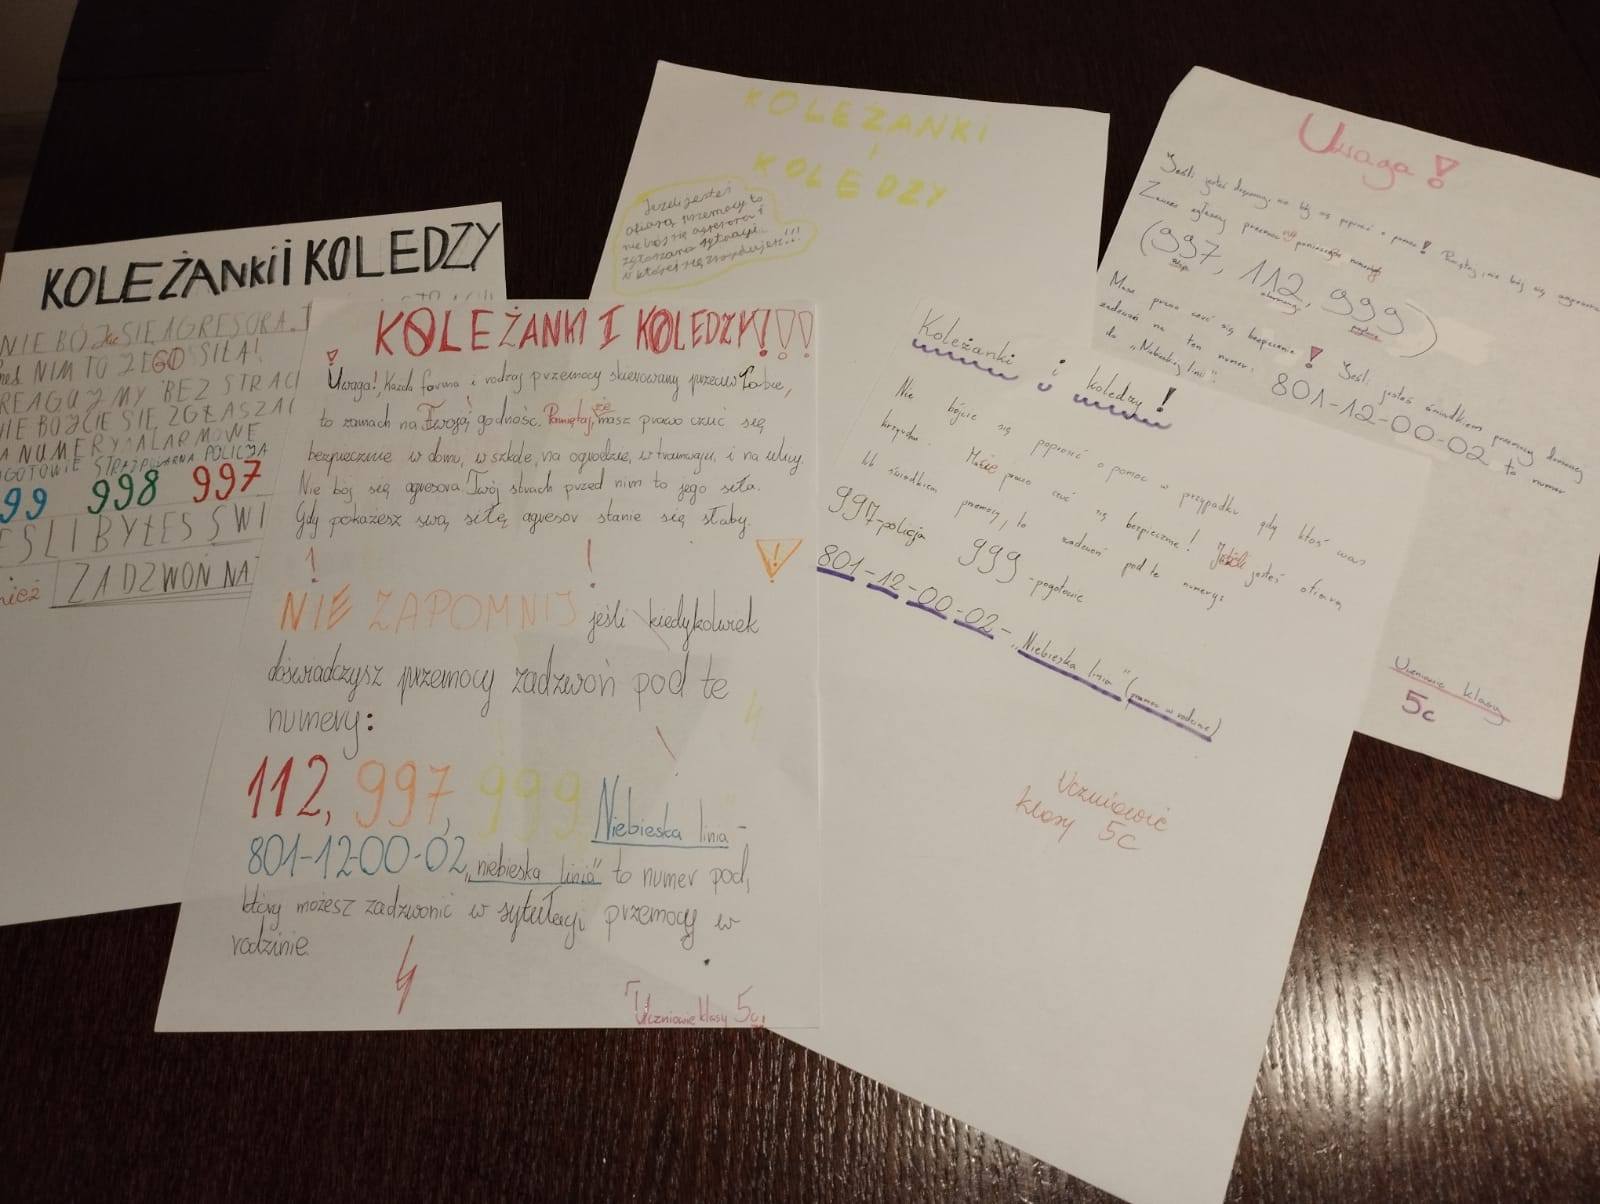 KOLEŻANKI I KOLEDZY
NIE BÓJ SIĘ AGRESORA.
NIM TO JEGO SIŁA!
REAGUJMY BEZ STRAC
NIE BÓJCIE SIĘ ZGŁASZAĆ
NA NUMERY ALARMOWE
OGOTOWIE STRAŻ POŻARNA POLICJA
99 998 997
EŚLI BYŁEŚ ŚWI
nież ZADZWOŃ NA
KOLEŻANKI I KOLEDZY!!!
Uwaga! Każda forma i rodzaj przemocy skierowany przeciw Tobie,
to zamach na Twoją godność. Pamiętaj, że masz prawo czuć się
bezpiecznie w domu, w szkole, na ogrodzie, w tramwaju, i na ulicy.
Nie bój się agresora. Twój strach przed nim to jego siła.
Gdy pokażesz swą siłę agresor stanie się słaby.
NIE ZAPOMNIJ jeśli kiedykolwiek
doświadczysz przemocy zadzwoń pod te
numery:
112, 997, 999 Niebieska linia -
801-12-00-02 „niebieska linia" to numer pod,
który możesz zadzwonić w sytułacji przemocy w
rodzinie.
Uczniowie klasy 5c!
KOLEŻANKI
I
KOLEDZY
Jeżeli jesteś
ofiarą przemocy to
nie bój się agresora i
zgłaszania sytuacji
w której się znajdujesz!!!
Koleżanki i koledzy!
Nie bójcie się poprosić o pomoc w przypadku gdy ktoś was
krzywdzi. Macie prawo czuć się bezpiecznie! Jeżeli jesteś ofiarą
lub świadkiem przemocy, to zadzwoń pod te numery:
997-policja 999-pogotowie
801-12-00-02-„Niebieska linia" (pomoc w rodzinie)
Uczniowie
klasy 5c
Uwaga!
Jeśli jesteś nie bój się poprosić o pomoc! Pamiętaj, nie bój się agresora
Zawsze zgłaszaj przemoc na poniższe numery
(997, 112, 999)
alarmowy
Masz prawo czuć się bezpiecznie! Jeśli jesteś świadkiem przemocy domowej
zadzwoń na ten numer: 801-12-00-02 to numer
do „Niebieskiej linii".
Uczniowie klasy
5c